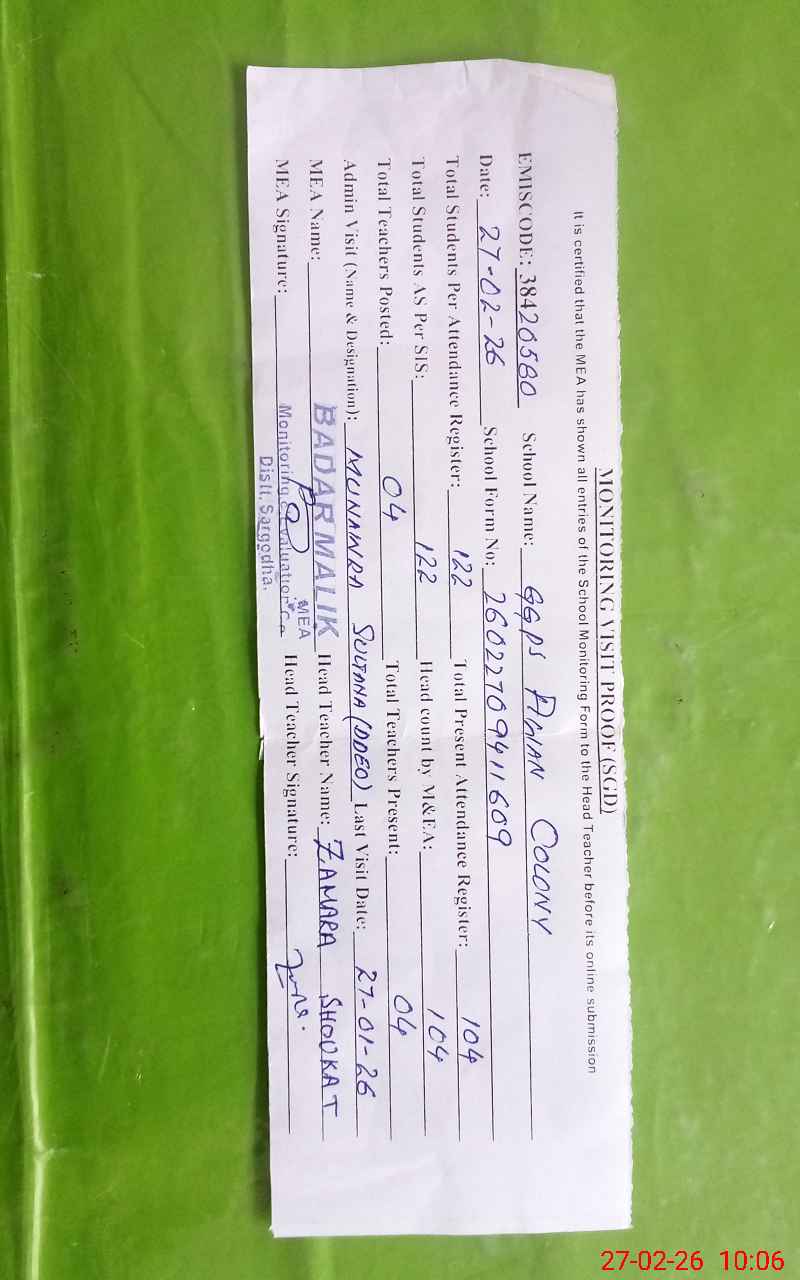 MONITORING VISIT PROOF (SGD)
It is certified that the MEA has shown all entries of the School Monitoring Form to the Head Teacher before its online submission
EMISCODE: 38420580 School Name: GGPS AMIAN COLONY
Date: 27-02-26 School Form No: 26022709411609
Total Students Per Attendance Register: 122 Total Present Attendance Register: 104
Total Students AS Per SIS: 122 Head count by M&EA: 104
Total Teachers Posted: 04 Total Teachers Present: 04
Admin Visit (Name & Designation): MUNAWRA SULTANA (DDEO) Last Visit Date: 27-01-26
MEA Name: BADAR MALIK Head Teacher Name: ZAMARA SHOUKAT
MEA
MEA Signature: Monitoring & Evaluation Head Teacher Signature:
Distt. Sargodha.
27-02-26 10:06